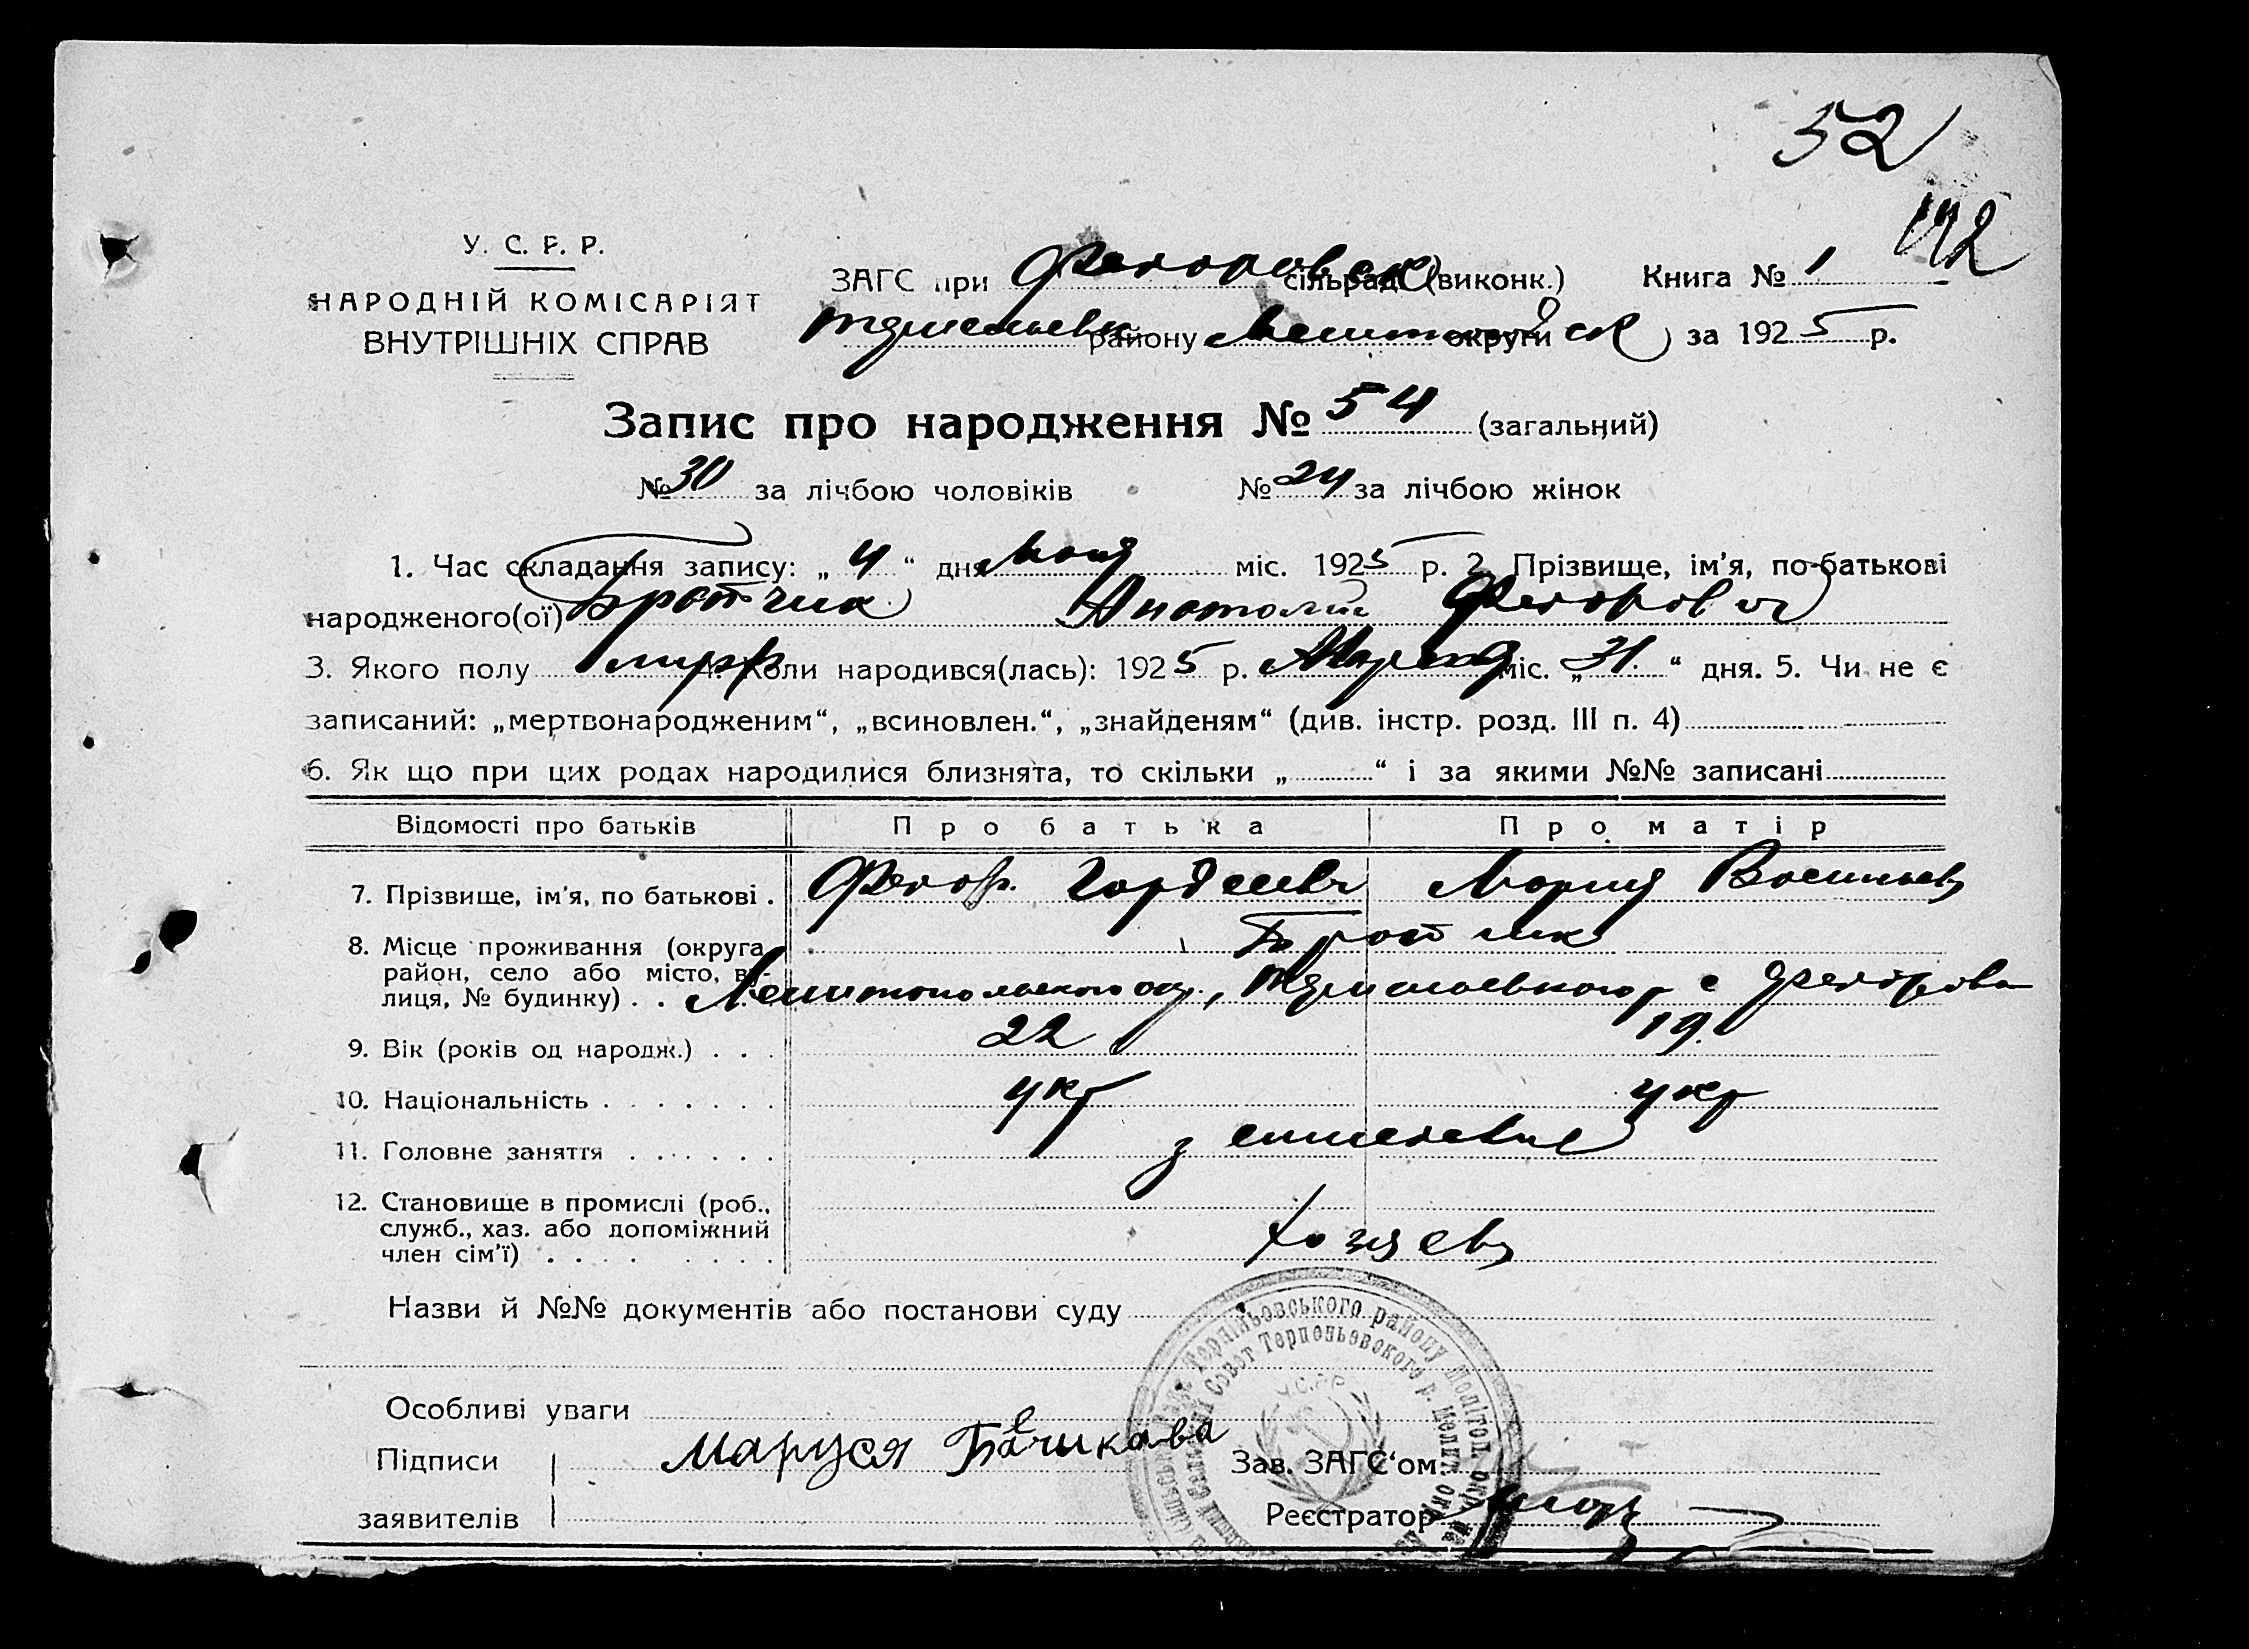 52
192
У. С. Р. Р.
НАРОДНІЙ КОМІСАРІЯТ
ВНУТРІШНІХ СПРАВ
ЗАГС при Федоровск сільраді (виконк.) Книга № 1
району Мелитопольск округи за 1925 р.
Запис про народження № 54 (загальний)
№ 30 за лічбою чоловіків № 24 за лічбою жінок
1. Час складання запису: „ 4 “ дня міс. 1925 р. 2. Прізвище, ім'я, по-батькові
народженого(ої) Анатолий Федорович
3. Якого полу 4. Коли народився(лась): 1925 р. Марта міс. „ 31 “ дня. 5. Чи не є
записаний: „мертвонародженим“, „всиновлен.“, „знайденям“ (див. інстр. розд. III п. 4)
6. Як що при цих родах народилися близнята, то скільки „ “ і за якими №№ записані
Відомості про батьків Про батька Про матір
7. Прізвище, ім'я, по батькові . Федор Гордеевич Мария Васильев
8. Місце проживання (округа,
район, село або місто, ву-
лиця, № будинку) . . Мелитопольского окр., с Федоровка
9. Вік (років од народж.) . . . 22 19
10. Національність . . . . . . . укр укр
11. Головне заняття . . . . . . землевлад
12. Становище в промислі (роб.,
служб., хаз. або допоміжний
член сім'ї) . . . . . . . . хозяев
Назви й №№ документів або постанови суду
Особливі уваги
Підписи Маруся Зав. ЗАГС'ом
заявителів Реєстратор